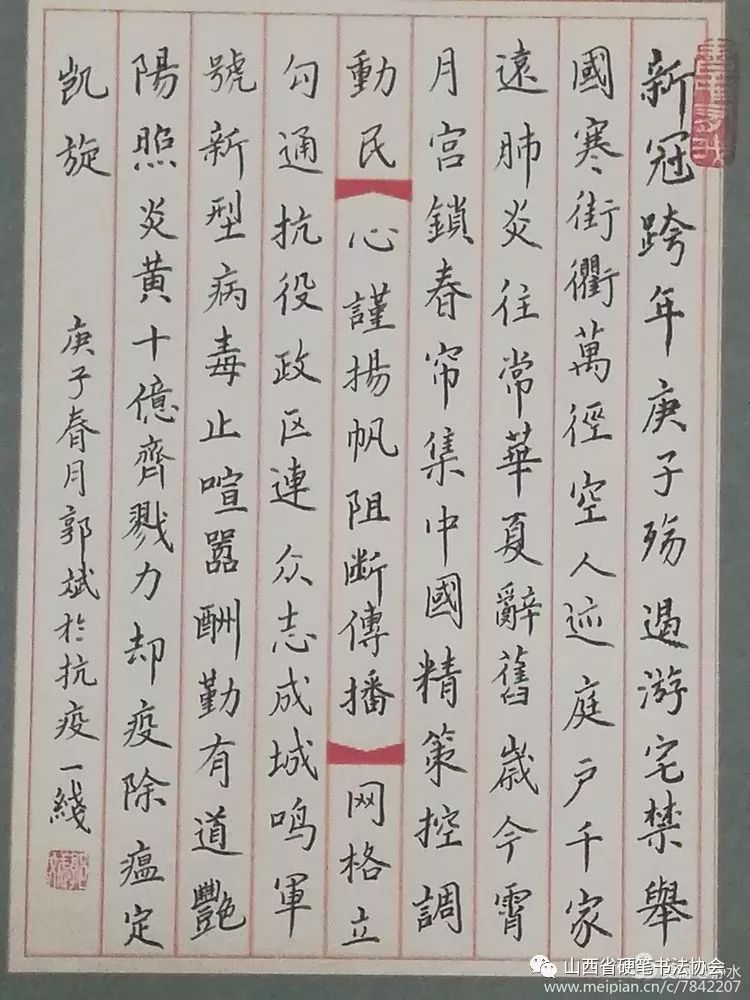 新冠跨年庚子殇遏游宅禁舉
國寒街衢萬徑空人迹庭户千家
遠肺炎往常華夏辭舊歲今霄
月宫鎖春帘集中國精策控調
動民心謹揚帆阻斷傳播网格立
勾通抗役政区連众志成城鸣軍
號新型病毒止喧嚣酬勤有道艷
陽照炎黄十億齊戮力却疫除瘟定
凯旋
庚子春月郭斌於抗疫一綫
山西省硬笔书法协会
www.meipian.cn/c/7842207